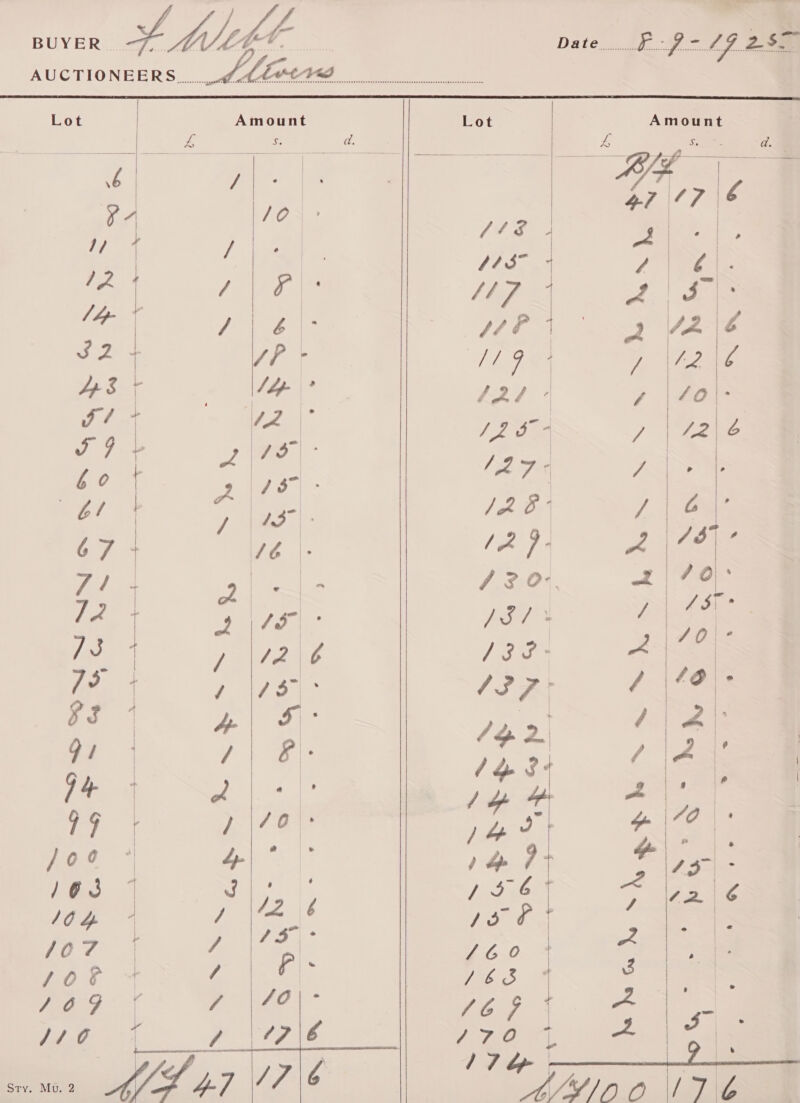 BUYER F. Webb. Date 8-9-1925
AUCTIONEERS Stevens
Lot Amount Lot Amount
£ s. d. £ s. d.
B/F
47 17 6
6 1 . .
8 - 10 .
11 - 1 . .
12 - 1 8 .
14 - 1 6 -
32 - 18 -
43 - 14 .
51 - 12 .
59 - 2 15 .
60 - 2 15 .
61 - 1 15 .
67 - 16 .
71 - 2 . -
72 - 2 15 .
73 - 1 12 6
75 - 1 15 .
83 - 4 5 .
91 - 1 8 .
94 - 2 . .
99 - 1 10 .
100 - 4 . .
103 - 3 . .
104 - 1 12 6
107 - 1 15 .
108 - 1 8 -
109 - 1 10 -
110 - 1 17 6
C/F 47 17 6
113 - 2 . .
115 - 1 6 .
117 - 2 5 .
118 - 2 12 6
119 - 1 12 6
121 - 1 10 -
125 - 1 12 6
127 - 1 . .
128 - 1 6 .
129 - 2 15 .
130 - 2 10 .
131 - 1 15 .
133 - 2 10 -
137 - 1 10 .
142 1 2 .
143 - 1 2 .
144 2 . .
145 4 10 .
149 - 4 . .
156 - 2 15 -
158 - 1 12 6
160 - 2 . .
163 - 3 . .
169 - 2 . .
170 - 2 5 .
174 9 .
C/F 100 17 6
Sty. Mu. 2